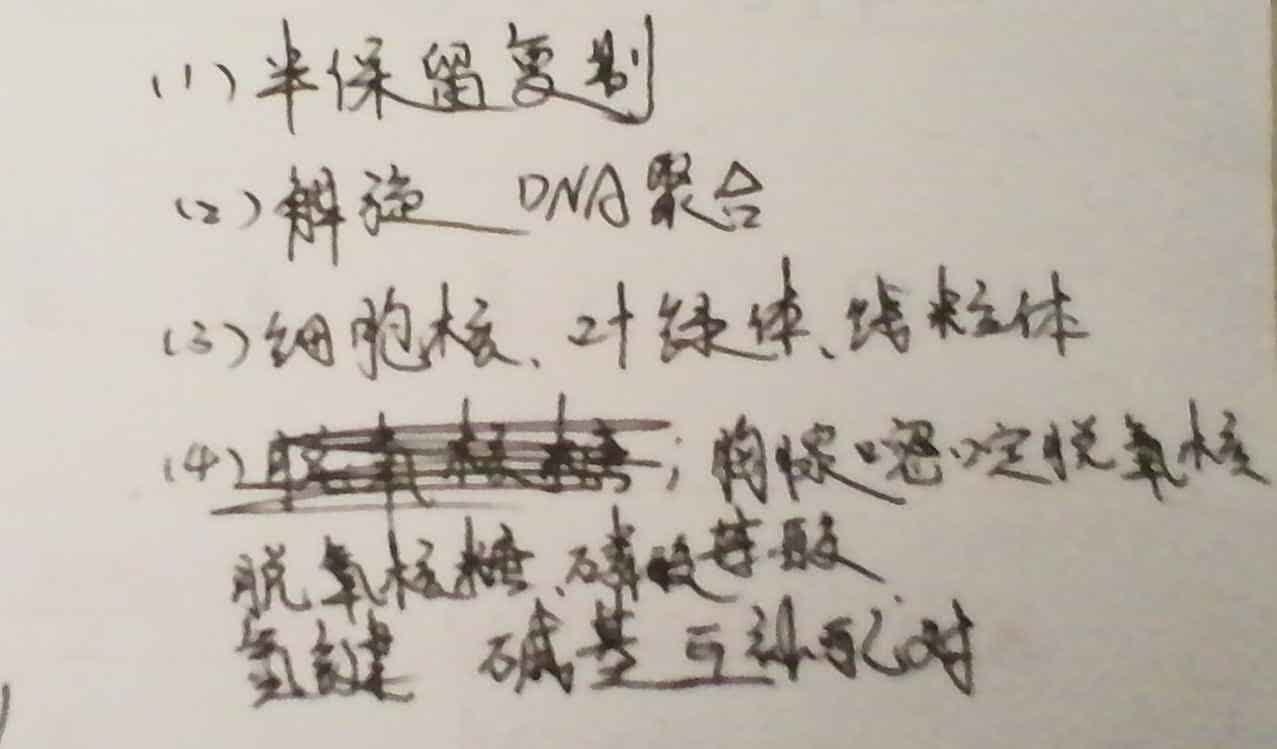 (1) 半保留复制
(2) 解旋 DNA聚合
(3) 细胞核、叶绿体、线粒体
(4) ; 胸腺嘧啶脱氧核
脱氧核糖、磷酸 苷酸
氢键 碱基互补配对